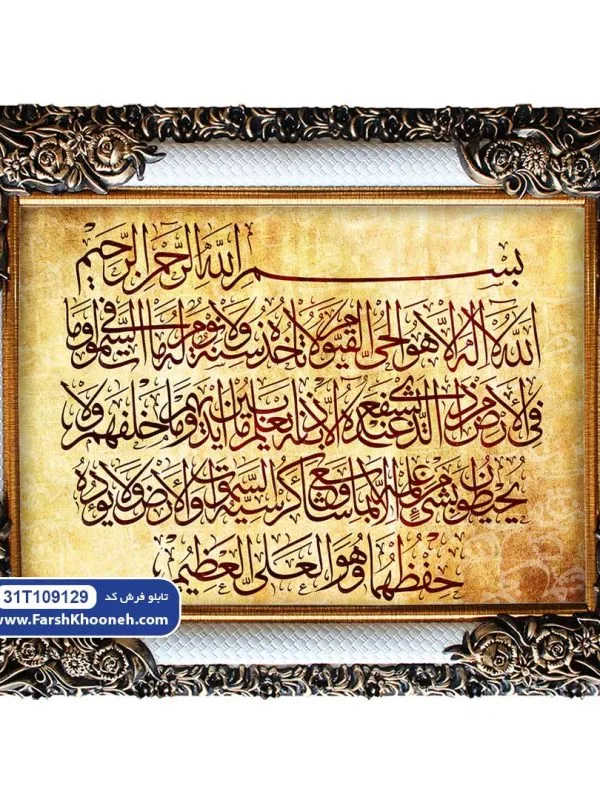 بسم الله الرحمن الرحيم
الله لا اله الا هو الحي القيوم لا تأخذه سنة ولا نوم له ما في السموات وما
في الارض من ذا الذي يشفع عنده الا باذنه يعلم ما بين ايديهم وما خلفهم ولا
يحيطون بشيء من علمه الا بما شاء وسع كرسيه السموات والارض ولا يؤده
حفظهما وهو العلي العظيم
تابلو فرش کد 31T109129
www.FarshKhooneh.com